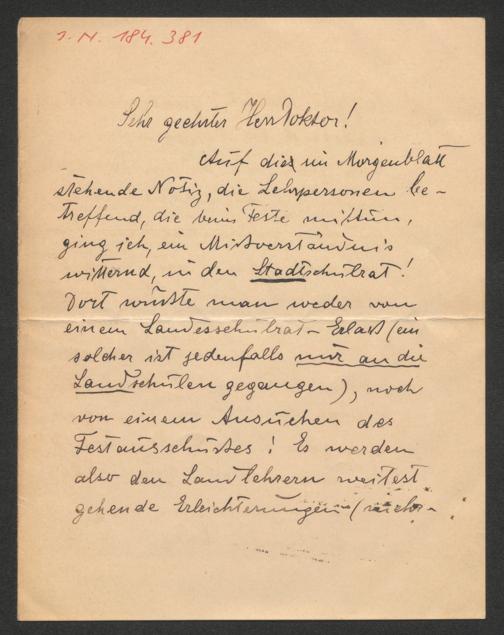 J. N. 184.381
Sehr geehrter Herr Doktor!
Auf die im Morgenblatt
stehende Notiz, die Lehrpersonen be-
treffend, die beim Feste mittun,
ging ich, ein Missverständnis
witternd, in den Stadtschulrat!
Dort wußte man weder von
einem Landesschulrat-Erlaß (ein
solcher ist jedenfalls nur an die
Landschulen gegangen), noch
von einem Ansuchen des
Festausschußes! Es werden
also den Landlehrern weitest
gehende Erleichterungen